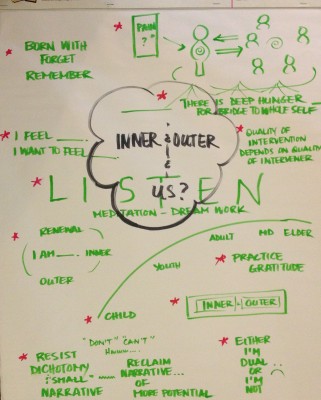 BORN WITH
FORGET
REMEMBER
PAIN
?"
THERE IS DEEP HUNGER
FOR BRIDGE TO WHOLE SELF
I FEEL
I WANT TO FEEL
INNER & OUTER
&
US?
QUALITY OF
INTERVENTION
DEPENDS ON QUALITY
OF INTERVENER
LISTEN
MEDITATION - DREAM WORK
RENEWAL
I AM INNER
OUTER
CHILD
YOUTH
ADULT
MD ELDER
PRACTICE
GRATITUDE
INNER & OUTER
"DON'T" "CAN'T"
RESIST
DICHOTOMY
"SMALL"
NARRATIVE
RECLAIM
NARRATIVE...
OF
MORE POTENTIAL
EITHER
I'M
DUAL
OR
I'M
NOT